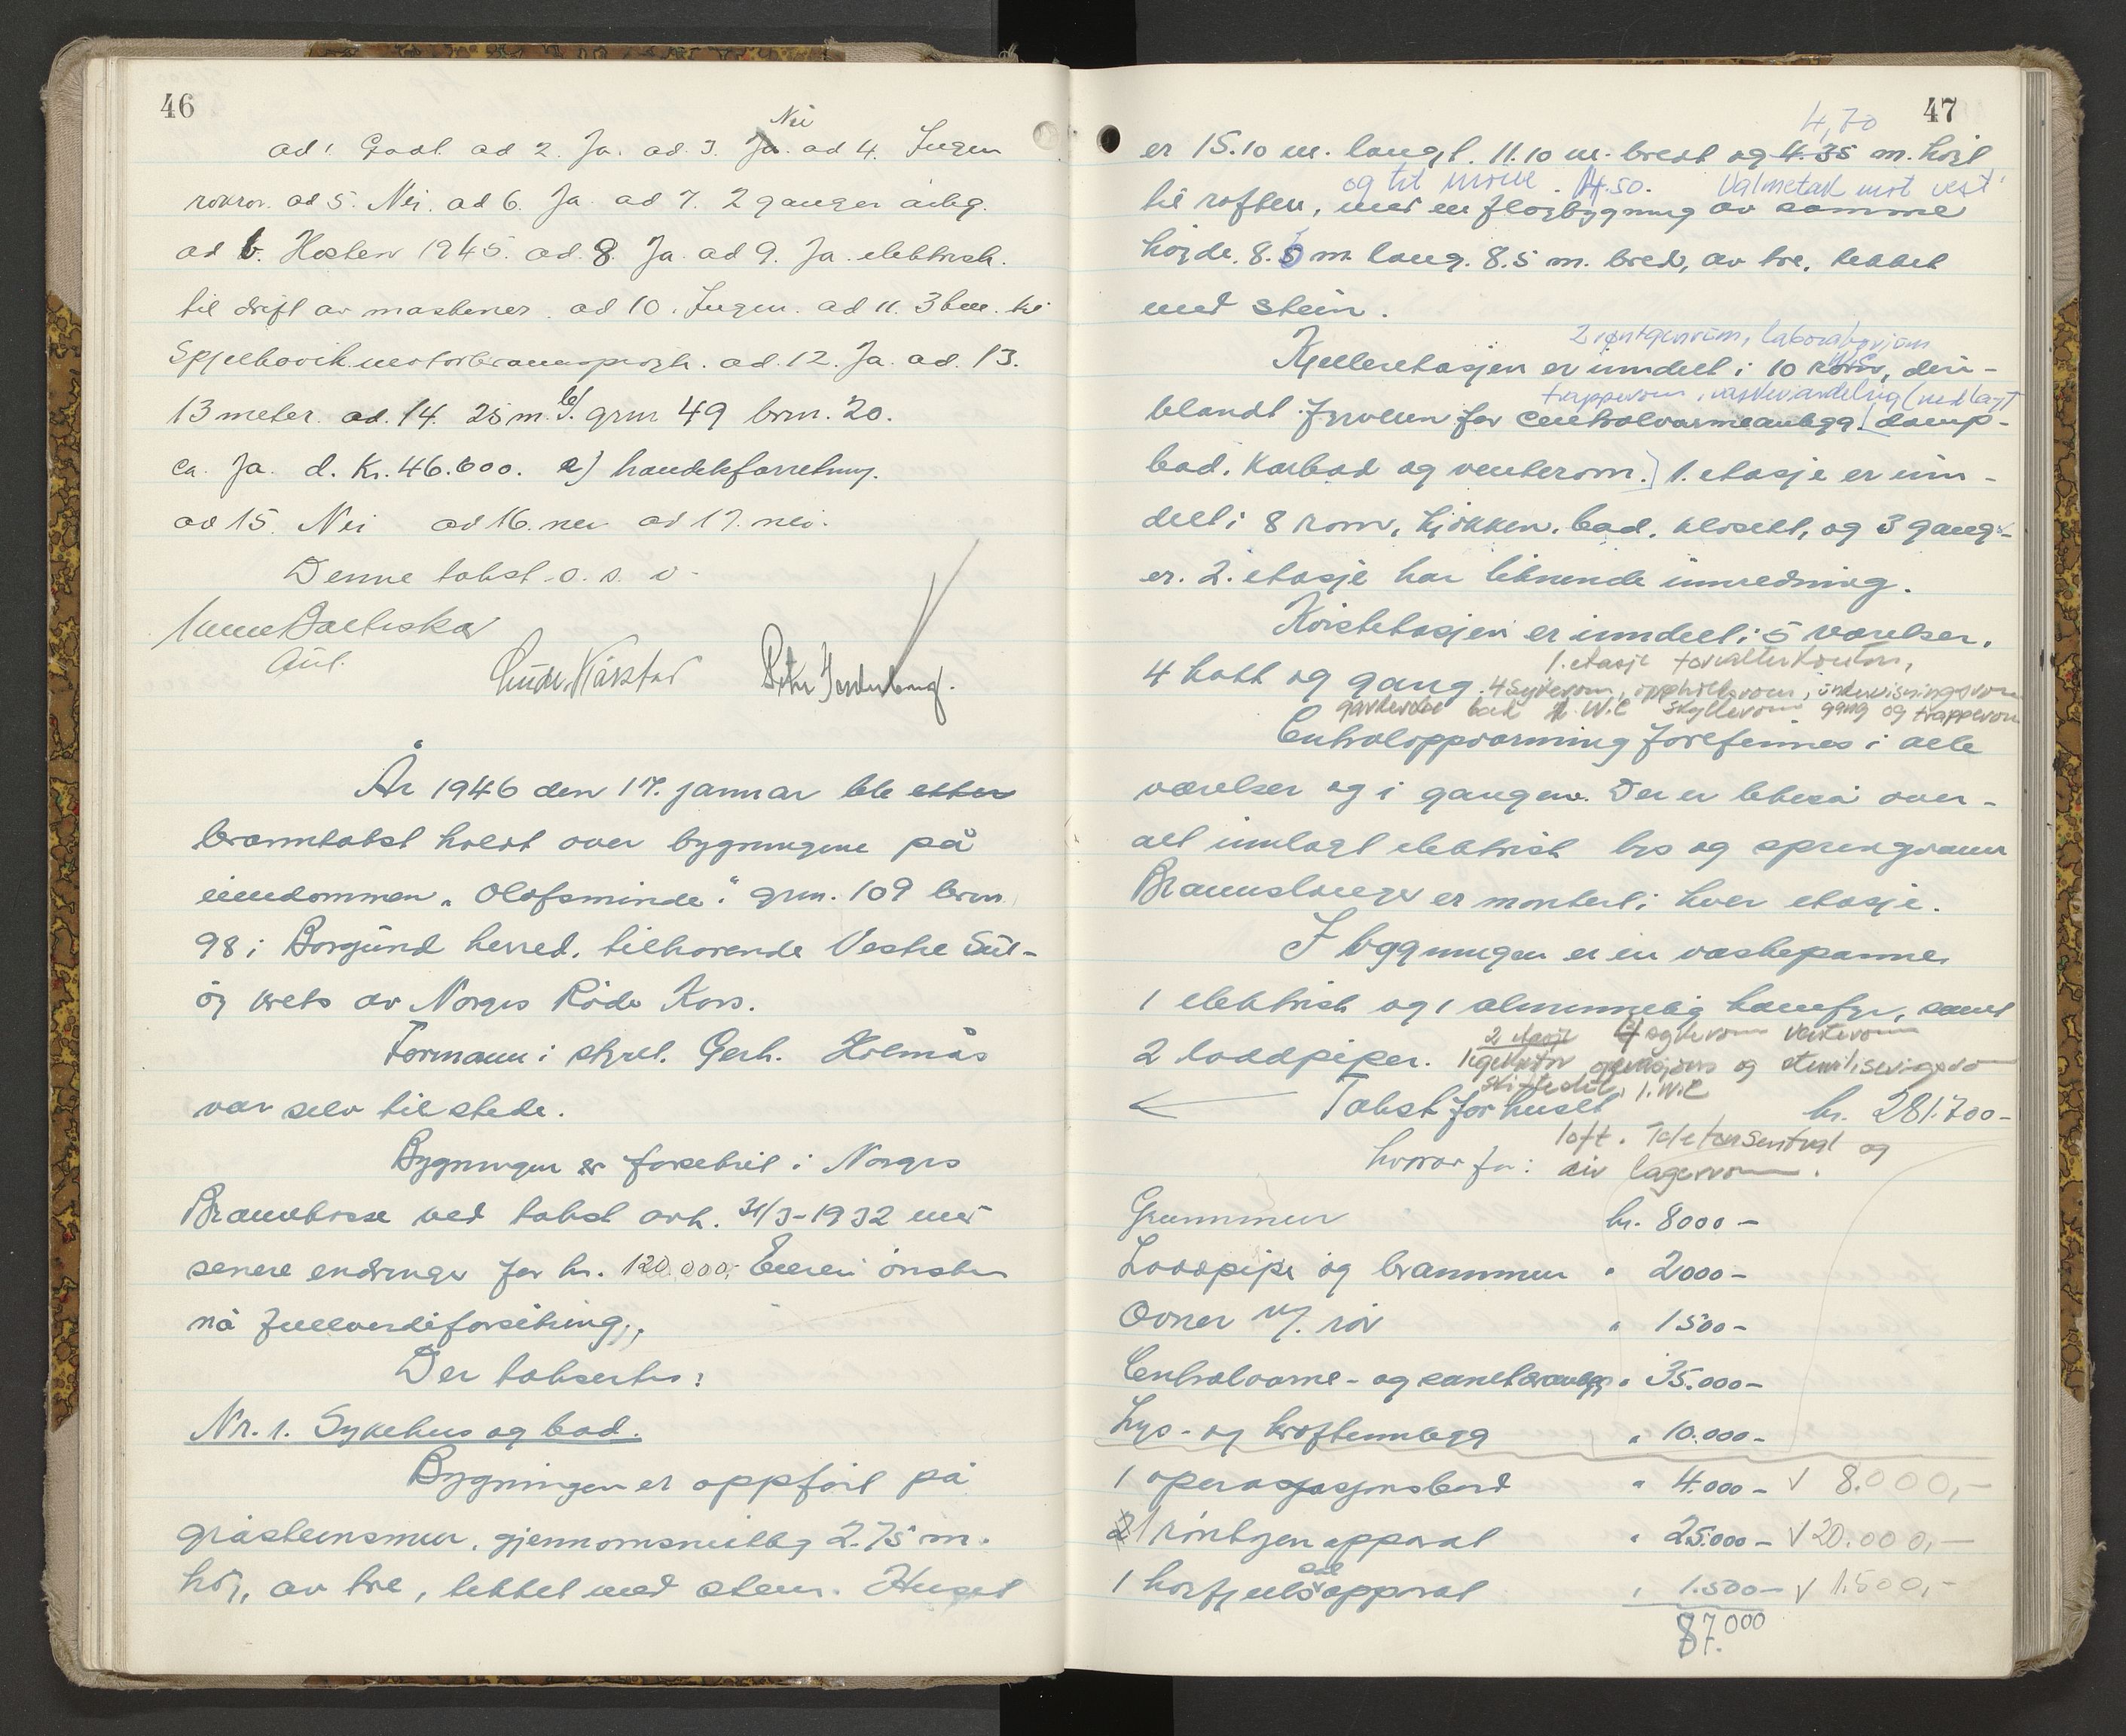 46
Nei
ad 1. Godt. ad 2. Ja. ad. 3. Ja. ad 4. Ingen
rokror. ad 5. Nei. ad 6. Ja. ad 7. 2 ganger årlig.
ad b. Høsten 1945. ad. 8. Ja. ad 9. Ja. elektrisk.
til drift av maskiner. ad 10. Ingen. ad 11. 3 km. til
Spjelkavik motorbrannsprøjte. ad. 12. Ja. ad. 13.
13 meter. ad. 14. 25 m. b). grnr 49 brnr. 20.
ca. Ja. d. Kr. 46.600. e) handelsforretning.
ad 15. Nei ad 16. nei ad 17. nei.
Denne takst o. s. v.
År 1946 den 17. januar ble etter
branntakst holdt over bygningene på
eiendommen „Olafsminde" grn. 109 brnr
98 i Borgund herred, tilhørende Vestre Sul-
og krets av Norges Røde Kors.
Formann i styret. Gerh. Holmås
var selv tilstede.
Bygningen er forsikret i Norges
Brannkasse ved takst avh. 31/3-1932 med
senere endringer for kr. 120.000,- Eieren ønsker
nå fullverdiforsikring,
Der takseres:
Nr. 1. Sykehus og bad.
Bygningen er oppført på
gråsteinsmur, gjennomsnittlig 2.75 m.
høj, av tre, tekket med stein. Huset
47
4,70
er 15.10 m. langt. 11.10 m. bredt og 4.35 m. højt
og til møne. 14.50. Valmetak mot vest
til raften, med en fløjbygning av samme
højde. 8.5 m. lang. 8.5 m. bred, av tre, tekket
med stein.
2 røntgenrum, laboratorium
W.C.
Kjelleretasjen er inndelt i 10 rom, deri-
trapperom, (nedlagt
blandt fyrrum for centralvarmeanlegg. [damp-
bad, karbad og venterom.] 1. etasje er inn-
delt i 8 rom, kjøkken, bad, klosett, og 3 gang-
er. 2. etasje har liknende innredning.
Kvistetasjen er inndelt i 5 værelser,
1. etasje forvalterkontor,
4 kott og gang. 4 sykerom, oppholdsrom, undervisningsrom
garderobe bad W.C skyllerom gang og trapperom
Centraloppvarming forefinnes i alle
værelser og i gangene. Der er likeså over-
alt innlagt elektrisk lys og springvann
Brannslanger er montert i hver etasje.
I bygningen er en vaskepanne,
1 elektrisk og 1 alminnelig komfyr, samt
2 etasje sykerom vakterom
2 loddpiper. legekontor operasjons og steriliseringsrom
1. W.C
Takst for huset kr. 281.700-
loft. Telefonsentral og
hvorav for: div lagerrom.
Grunnmur kr. 8000-
Loddpipe og brannmur " 2000-
Ovner m/. rør " 1500-
Centralvarme- og sanitæranlegg " 35.000-
Lys- og kraftinnlegg " 10.000-
1 operasjasjonsbord " 4.000- V 8.000,-
2 1 røntgen apparat " 25.000- V 20.000,-
1 højfjellssolapparat " 1.500- V 1.500,-
87.000